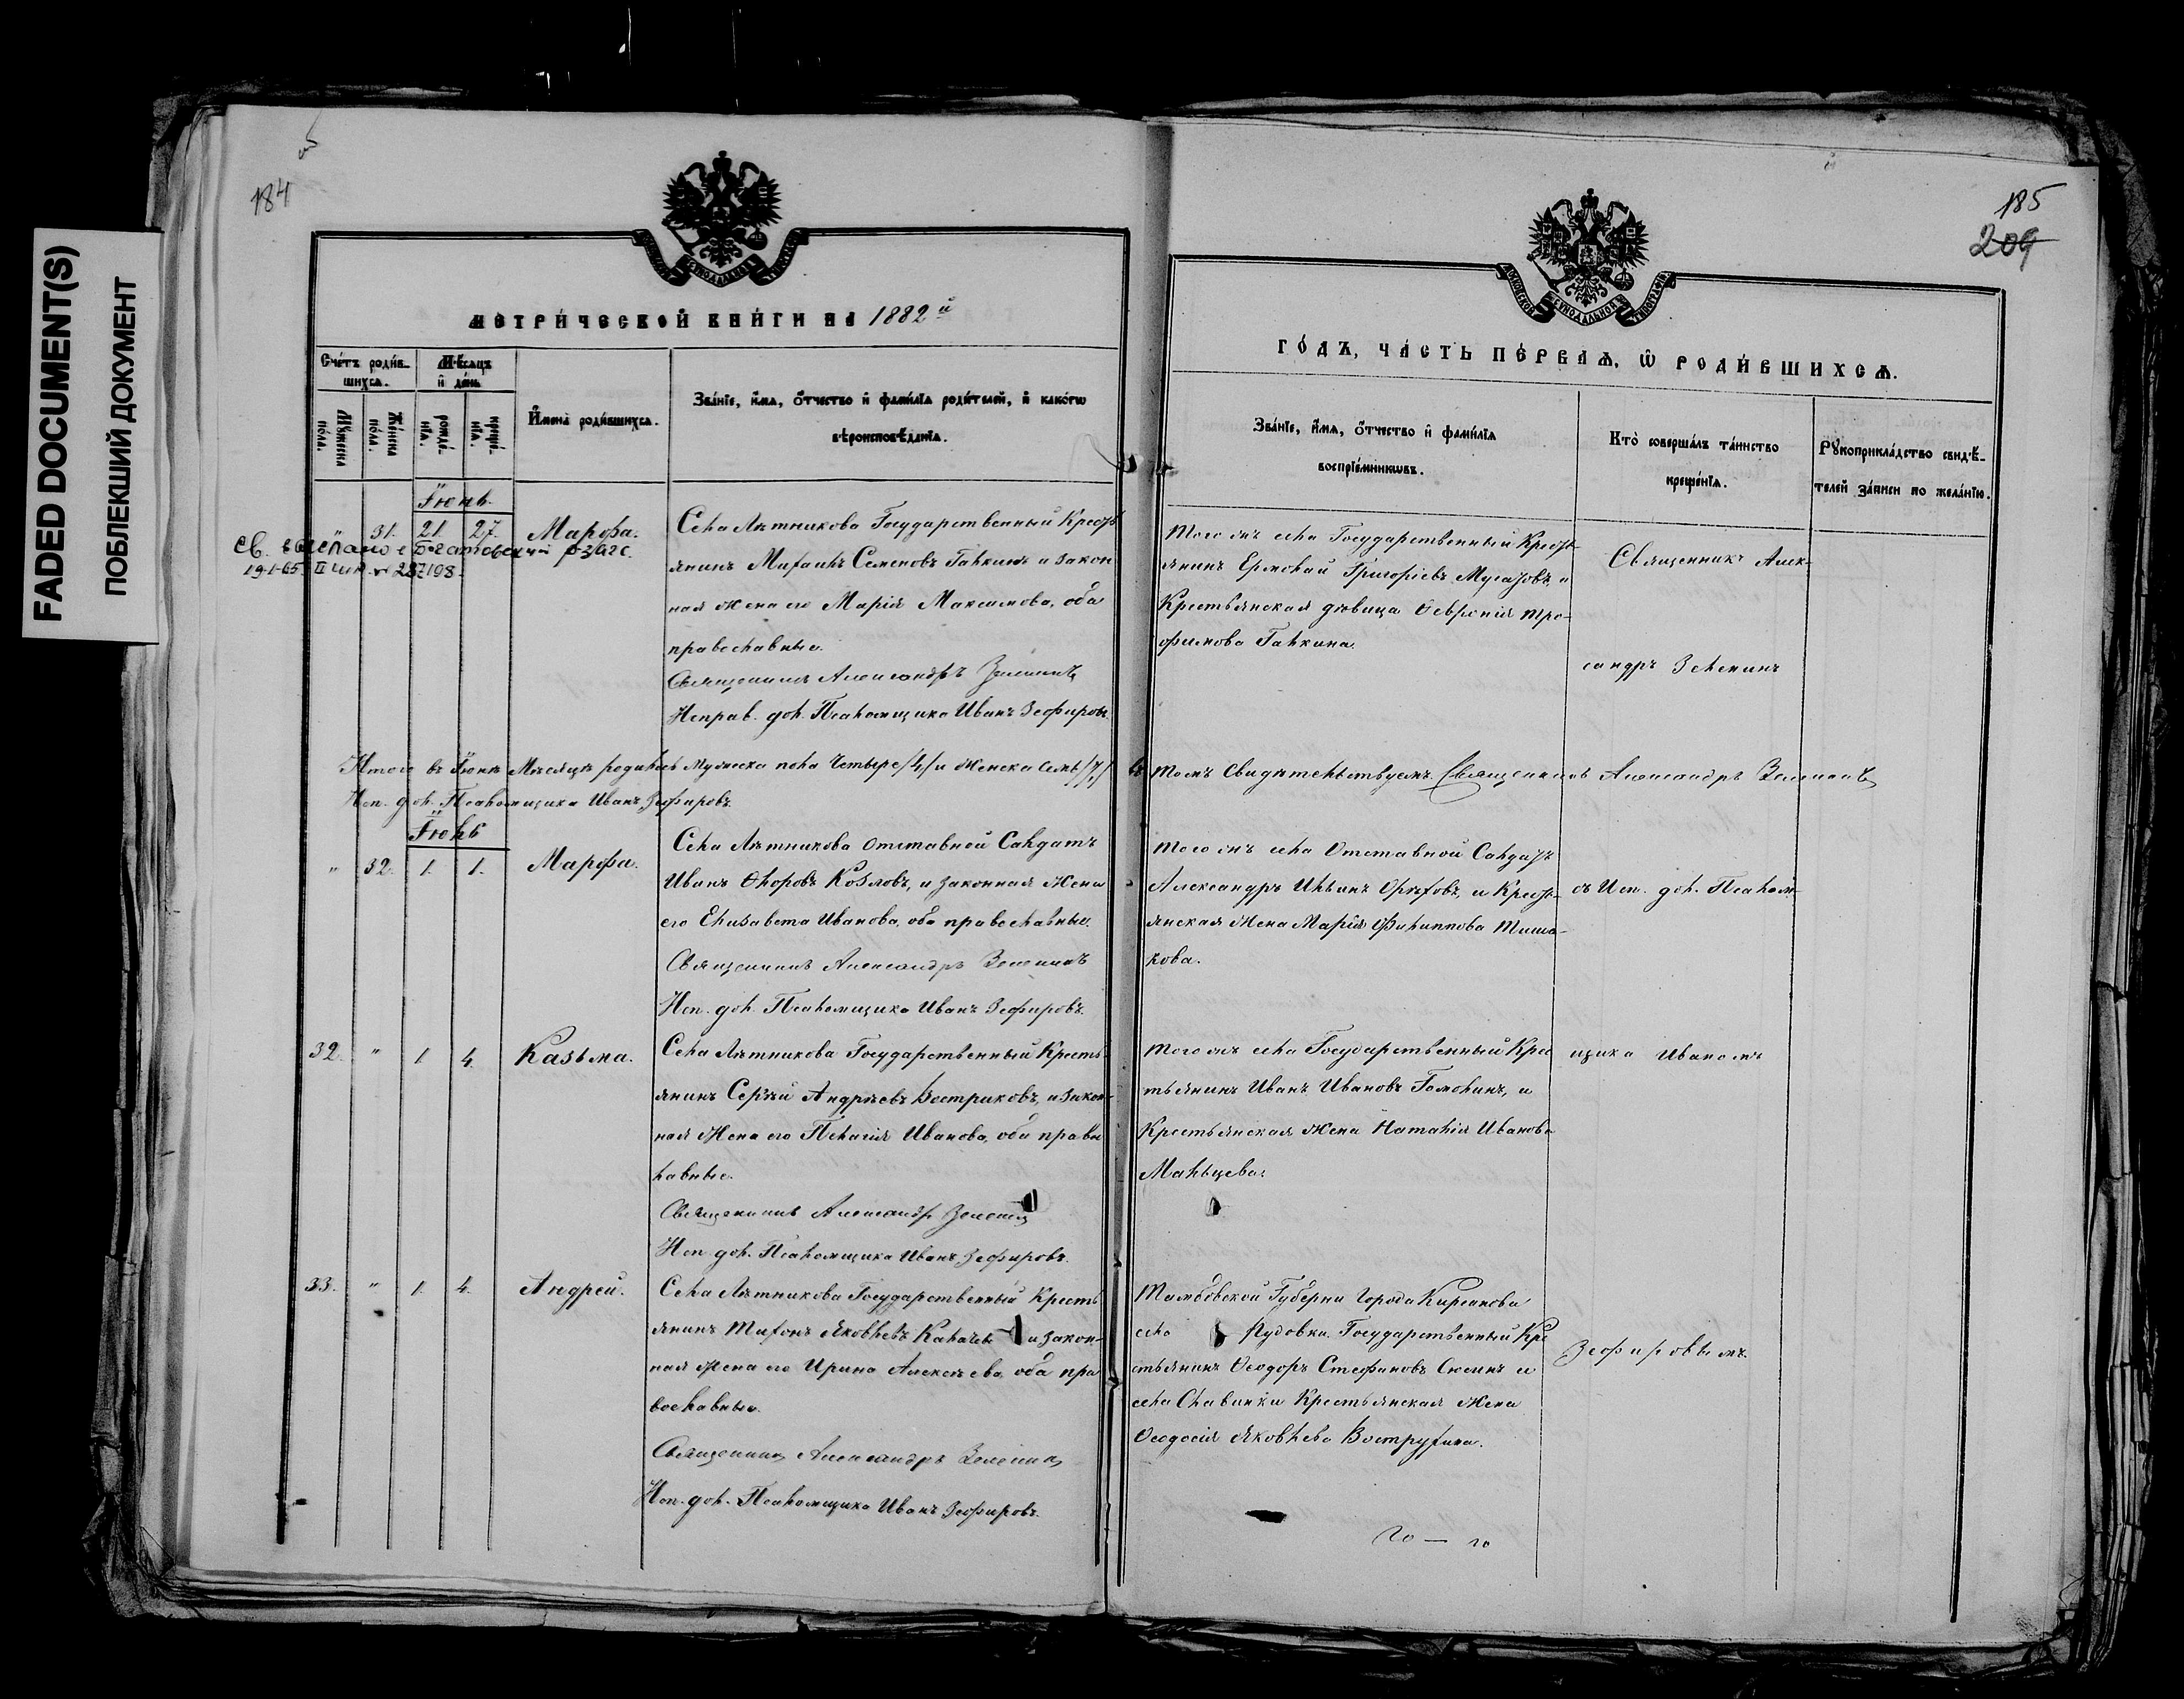 FADED DOCUMENT(S)
ПОБЛЕКШИЙ ДОКУМЕНТ
184
МЕТРИ́ЧЕСКОЙ КНИ́ГИ НА 1882й
Сче́тъ роди́в-
шихсѧ.
Мѣ́сѧцъ
и҆ де́нь
Мꙋ́жеска
по́ла.
Же́нска
по́ла.
рожде́-
нїѧ.
креще́-
нїѧ.
И҆мена̀ роди́вшихсѧ.
Зва́нїе, и҆́мѧ, ѻ҆́тчество и҆ фами́лїѧ роди́телей, и҆ како́гѡ
вѣроисповѣ́данїѧ.
Іюнь.
31. 21. 27. Марфа.
Св. выслано Богатовский р-загс.
19-1-65 II ЫЯ № 287198.
Села Лѣтникова Государственный Кресть
янинъ Михаилъ Семеновъ Галкинъ и закон
ная жена его Марія Максимова, оба
православные.
Священникъ Александръ Зеленинъ
Исправ. дол. Псаломщика Иванъ Зефировъ.
Итого въ Іюнѣ Мѣсяцѣ родилось Мужеска пола Четыре /4/ и Женска Семь /7/
Исп. дол. Псаломщика Иванъ Зефировъ.
Іюль
" 32. 1. 1. Марфа.
Села Лѣтникова Отставной Салдатъ
Иванъ Ѳлоровъ Козловъ, и законная Жена
его Елизавета Иванова, оба православные.
Священникъ Александръ Зеленинъ
Исп. дол. Псаломщика Иванъ Зефировъ.
32. " 1 4. Казьма.
Села Лѣтникова Государственный Кресть
янинъ Сергѣй Андрѣевъ Востриковъ, и закон-
ная Жена его Пелагія Иванова, оба право
лавные.
Священникъ Александръ Зеленинъ
Исп. дол. Псаломщика Иванъ Зефировъ.
33. " 1. 4. Андрей.
Села Лѣтникова Государственный Кресть
янинъ Тихонъ Яковлевъ Калачевъ и закон-
ная жена его Ирина Алексѣева, оба пра
вославные.
Священникъ Александръ Зеленинъ
Исп. дол. Псаломщика Иванъ Зефировъ.
185
209
МОСКОВСКОЙ СѴНОДАЛЬНОЙ ТИПОГРАФІИ
ГО́ДЪ, ЧА́СТЬ ПЕ́РВАѦ, Ѽ РОДИ́ВШИХСѦ.
Зва́нїе, и҆́мѧ, ѻ҆́тчество и҆ фами́лїѧ
воспрїе́мникѡвъ.
Кто̀ соверша́лъ та́инство
креще́нїѧ.
Рꙋкоприкла́дство свидѣ́-
телей за́писи по жела́нїю.
Того жъ села Государственный Кресть-
янинъ Ермолай Григоріевъ Мугатовъ, и
Крестьянская дѣвица Ѳеврснія Тро-
фимова Галкина.
Священникъ Алек-
сандръ Зеленинъ
въ томъ Свидѣтельствуемъ. Священникъ Александръ Зеленинъ
Того жъ села Отставной Салдатъ
Александръ Ильинъ Орѣховъ, и Кресть-
янская Жена Марія Филиппова Тиша-
кова.
съ Исп. дол. Псалом-
Того жъ села Государственный Крес
тьянинъ Иванъ Ивановъ Гамолинъ, и
Крестьянская Жена Наталія Иванова
Мальцева.
щика Иваномъ
Тамбовской Губерни Города Кирсанова
села Рудовки Государственный Кре
стьянинъ Ѳеодоръ Стефановъ Сюсинъ и
села Славинки Крестьянская Жена
Ѳеодосія Яковлева Вострухина.
Зефировымъ.